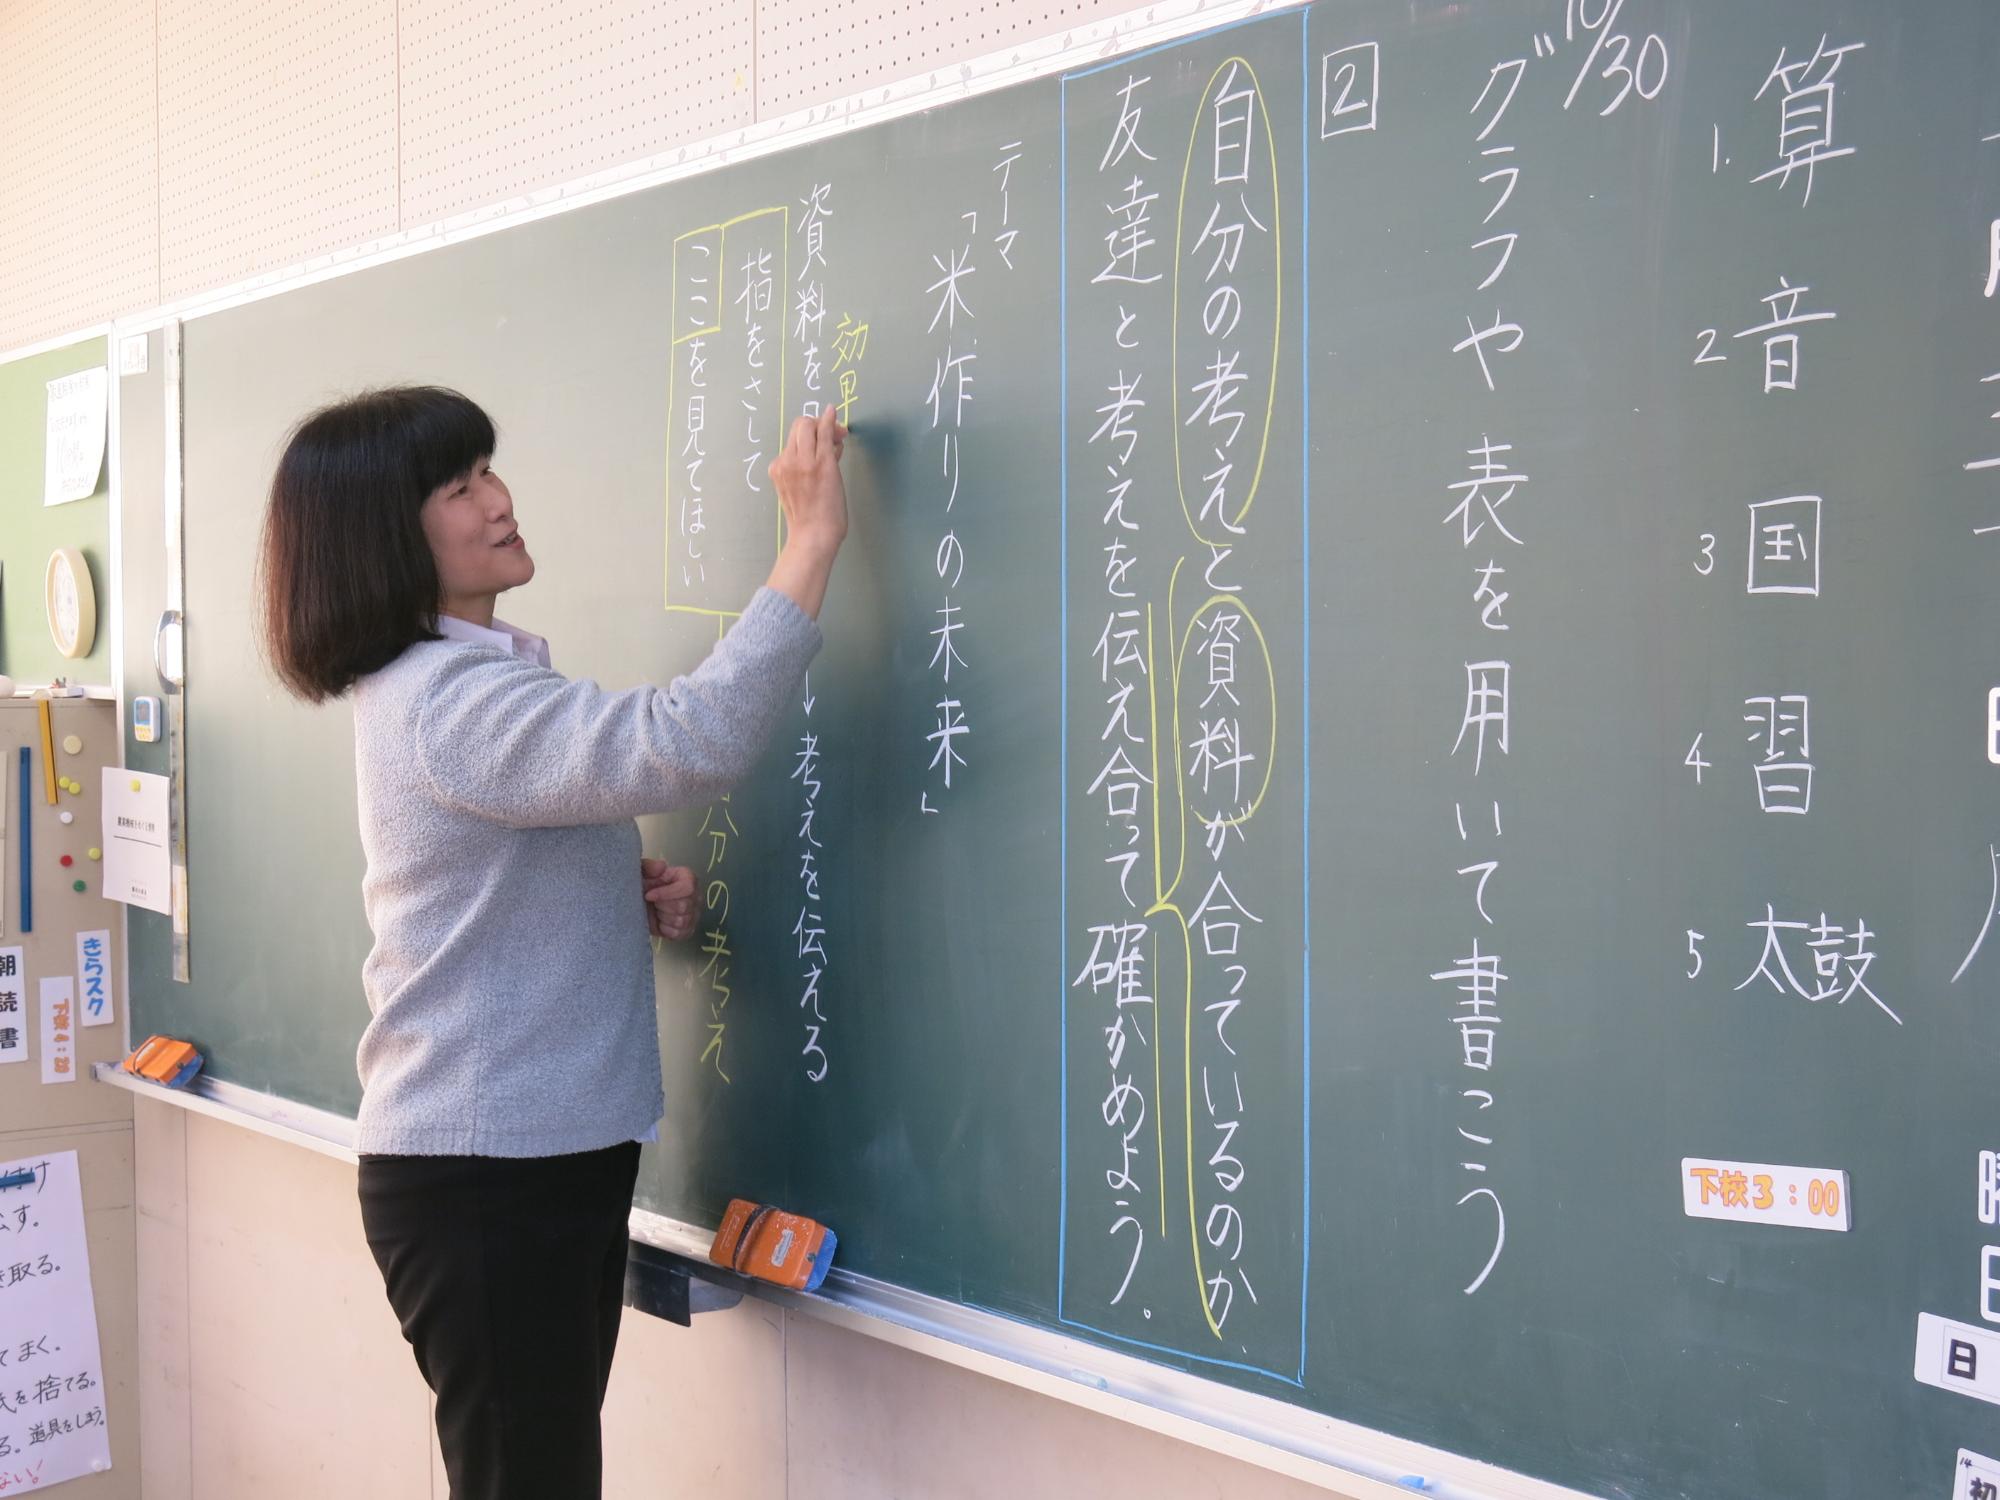 1. 算
2 音
3 国
4 習
5 太鼓
下校3:00
日
初
10/30
グラフや表を用いて書こう
2
自分の考えと資料が合っているのか、
友達と考えを伝え合って確かめよう。
テーマ
「米作りの未来」
効果
資料を
↓考えを伝える
指をさして
ここを見てほしい
分の考え
きらスク
朝読書
取る。
てまく。
を捨てる。
道具をしまう。
ない!